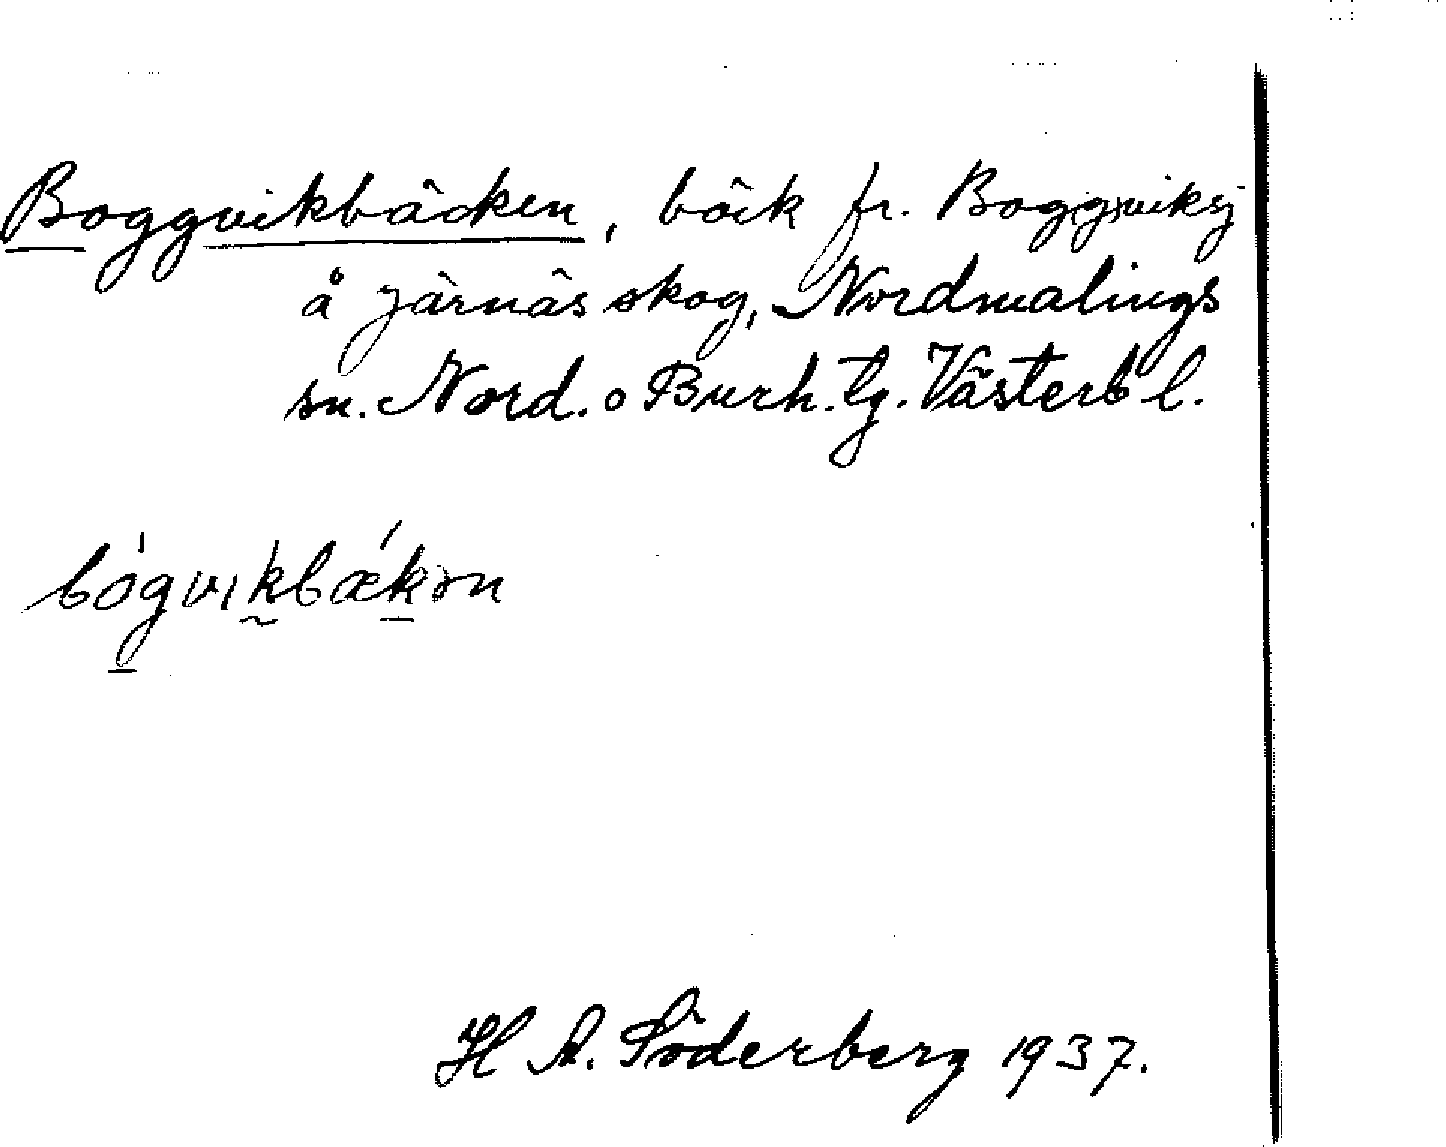 Boggvikbäcken, bäck fr. Boggsviksj
å Järnäs skog, Nordmalings
sn. Nord. o Burh. tg. Västerb l.
bógvikbǽkən
H A. Söderberg 1937.